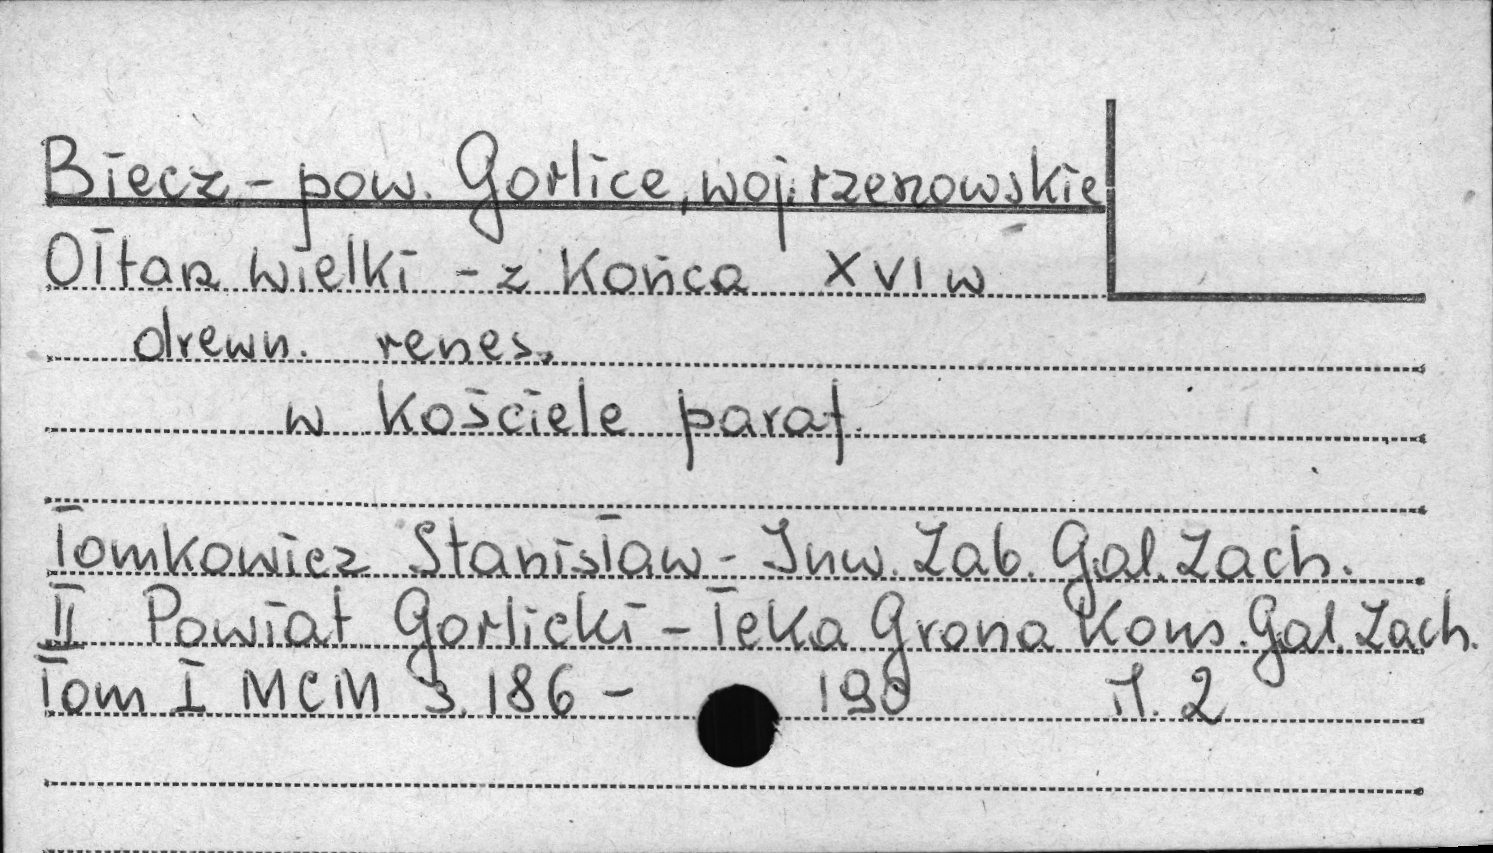 Biecz - pow. Gorlice, woj. rzeszowskie
Ołtarz wielki - z końca XVI w
drewn. renes.
w kościele paraf.
Tomkowicz Stanisław - Inw. Zab. Gal. Zach.
II Powiat Gorlicki - Teka Grona Kons. Gal. Zach.
Tom I MCM s. 186 - 190 il. 2